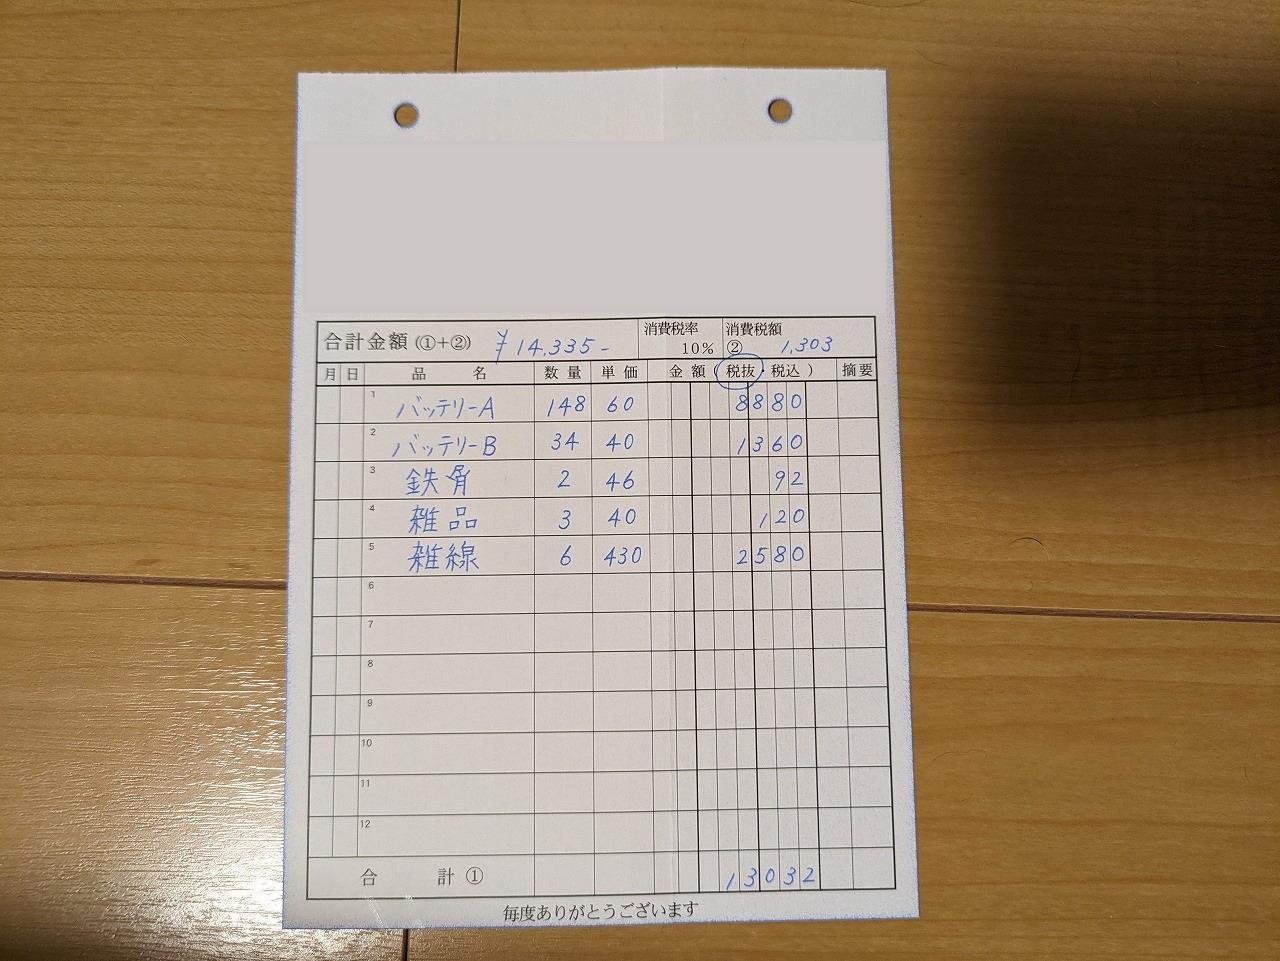 合計金額(①+②) ¥14,335- 消費税率 10% 消費税額 ② 1,303
月 日 品名 数量 単価 金額(税抜・税込) 摘要
1 バッテリーA 148 60 8880
2 バッテリーB 34 40 1360
3 鉄骨 2 46 92
4 雑品 3 40 120
5 雑線 6 430 2580
6
7
8
9
10
11
12
合計① 13032
毎度ありがとうございます